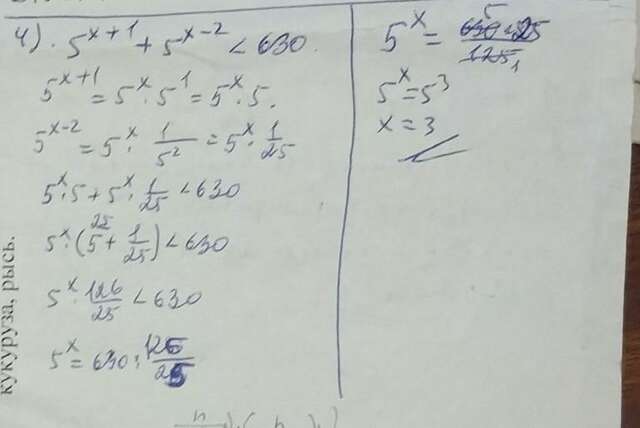 4). 5^(x+1) + 5^(x-2) < 630.
5^(x+1) = 5^x · 5^1 = 5^x · 5.
5^(x-2) = 5^x · 1/5^2 = 5^x · 1/25
5^x · 5 + 5^x · 1/25 < 630
5^x · (5 + 1/25) < 630
5^x · 126/25 < 630
5^x = 630 : 126/25
5^x = 630 · 25/126
5^x = 5^3
x = 3
кукуруза, рысь.